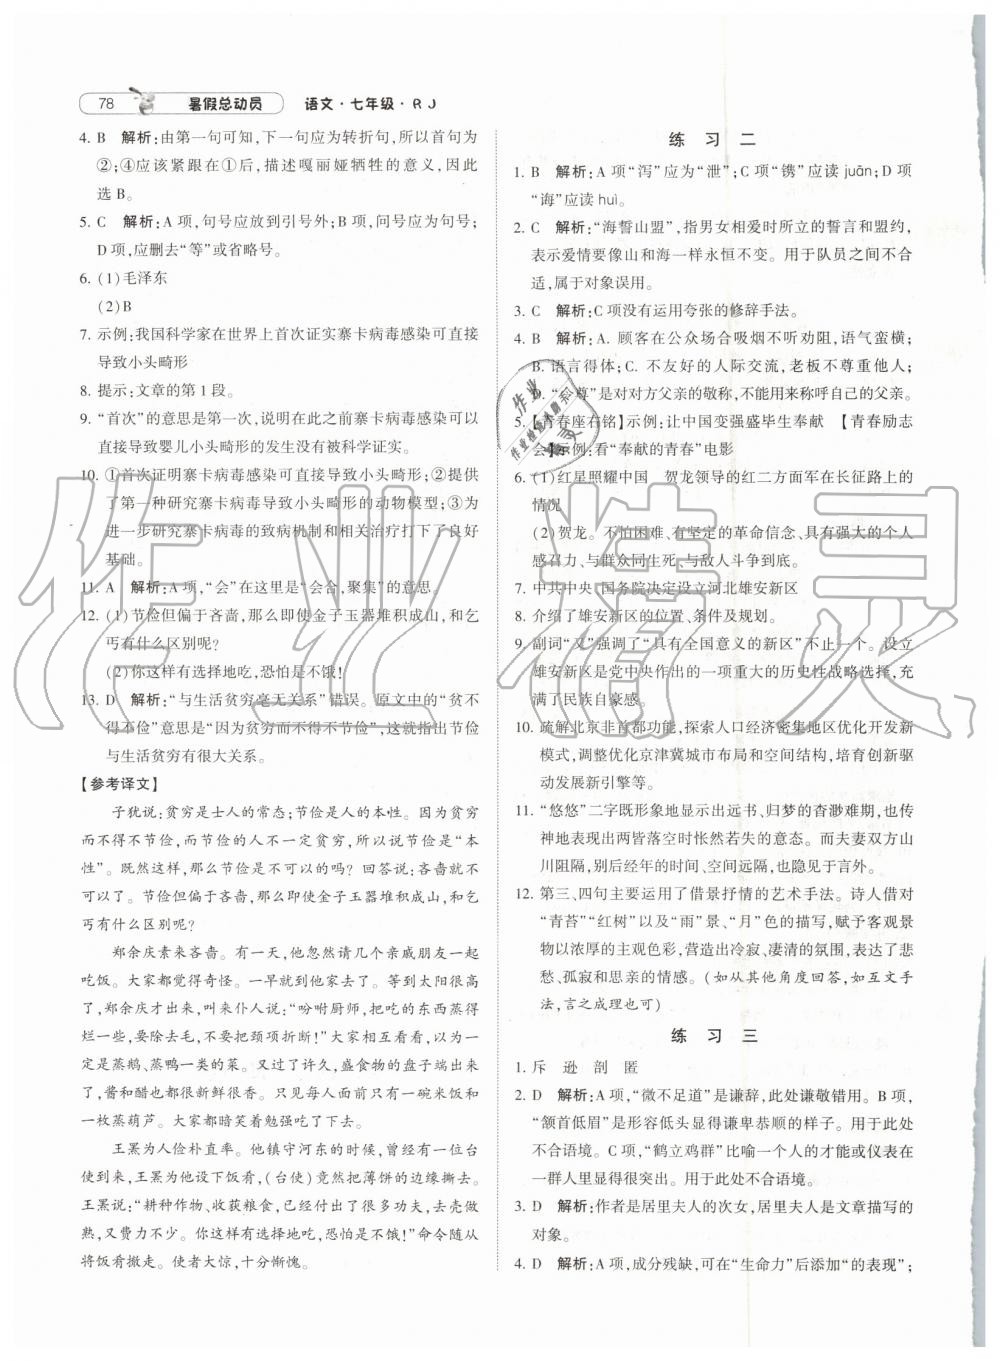 78 暑假总动员 语文·七年级·RJ
4. B 解析:由第一句可知,下一句应为转折句,所以首句为
②;④应该紧跟在①后,描述嘎丽娅牺牲的意义,因此
选B。
5. C 解析:A项,句号应放到引号外;B项,问号应为句号;
D项,应删去“等”或省略号。
6. (1)毛泽东
(2)B
7. 示例:我国科学家在世界上首次证实寨卡病毒感染可直接
导致小头畸形
8. 提示:文章的第1段。
9. “首次”的意思是第一次,说明在此之前寨卡病毒感染可以
直接导致婴儿小头畸形的发生没有被科学证实。
10. ①首次证明寨卡病毒感染可直接导致小头畸形;②提供
了第一种研究寨卡病毒导致小头畸形的动物模型;③为
进一步研究寨卡病毒的致病机制和相关治疗打下了良好
基础。
11. A 解析:A项,“会”在这里是“会合,聚集”的意思。
12. (1)节俭但偏于吝啬,那么即使金子玉器堆积成山,和乞
丐有什么区别呢?
(2)你这样有选择地吃,恐怕是不饿!
13. D 解析:“与生活贫穷毫无关系”错误。原文中的“贫不
得不俭”意思是“因为贫穷而不得不节俭”,这说明节俭
与生活贫穷有很大关系。
【参考译文】
子犹说:贫穷是士人的常态;节俭是人的本性。因为贫穷
而不得不节俭,而节俭的人不一定贫穷,所以说节俭是“本
性”。既然这样,那么节俭是不可以的吗?回答说:吝啬就不
可以了。节俭但偏于吝啬,那么即使金子玉器堆积成山,和乞
丐有什么区别呢?
郑余庆素来吝啬。有一天,他忽然请几个亲戚朋友一起
吃饭。大家都觉得奇怪。一早就过去了。等到太阳很高
了,郑余庆才出来,叫来仆人说:“吩咐厨师,把吃的东西蒸得
烂一些,要除去毛,不要把颈项折断!”大家相互看看,以为一
定是蒸鹅、蒸鸭一类的菜。又过了许久,盛食物的盘子端出来
了,酱和醋也都很新鲜很香。只见每人面前只有一碗米饭和
一枚蒸葫芦。大家都暗笑着勉强吃了下去。
王罴为人俭朴直率。他镇守河东的时候,曾经有一位台
使到访,王罴为他设下饭肴,(台使)竟然将薄饼的边缘撕去。
王罴说:“耕种作物、收获粮食,已经付出了很多功夫,去壳做
熟,又费力不少。你这样有选择地吃,恐怕是不饿!”随从立刻
将饭肴撤走。使者大惊,十分惭愧。
练习二
1. B 解析:A项“泻”应为“泄”;C项“镌”应读juān;D项
“诲”应读huì。
2. C 解析:“海誓山盟”,指男女相爱时所立的誓言和盟约,
表示爱情要像山和海一样永恒不变。用于队员之间不合
适,属于对象误用。
3. C 解析:C项没有运用夸张的修辞手法。
4. B 解析:A. 顾客在公众场合吸烟不听劝阻,语气蛮横;
B. 语言得体;C. 不友好的人际交流,老板不尊重他人;
D. “令尊”是对对方父亲的敬称,不能用来称呼自己的父亲。
5. 【青春座右铭】示例:让中国变强盛毕生奉献 【青春励志
会】示例:看“奉献的青春”电影
6. (1)红星照耀中国 贺龙领导的红二方面军在长征路上的
情况
(2)贺龙。不怕困难、有坚定的革命信念、具有强大的个人
感召力、与群众同生死、与敌人斗争到底。
7. 中共中央、国务院决定设立河北雄安新区
8. 介绍了雄安新区的位置、条件及规划。
9. 副词“又”强调了“具有全国意义的新区”不止一个。设立
雄安新区是党中央作出的一项重大的历史性战略选择,充
满了民族自豪感。
10. 疏解北京非首都功能,探索人口经济密集地区优化开发新
模式,调整优化京津冀城市布局和空间结构,培育创新驱
动发展新引擎等。
11. “悠悠”二字既形象地显示出远书、归梦的杳渺难期,也传
神地表现出两皆落空时怅然若失的意态。而夫妻双方山
川阻隔,别后经年的时间、空间远隔,也隐见于言外。
12. 第三、四句主要运用了借景抒情的艺术手法。诗人借对
“青苔”“红树”以及“雨”景、“月”色的描写,赋予客观景
物以浓厚的主观色彩,营造出冷寂、凄清的氛围,表达了悲
愁、孤寂和思亲的情感。(如从其他角度回答,如互文手
法,言之成理也可)
练习三
1. 斥 逊 剖 匿
2. D 解析:A项,“微不足道”是谦辞,此处谦敬错用。B项,
“颔首低眉”是形容低头显得谦卑恭顺的样子。用于此处
不合语境。C项,“鹤立鸡群”比喻一个人的才能或仪表在
一群人里显得很突出。用于此处不合语境。
3. D 解析:作者是居里夫人的次女,居里夫人是文章描写的
对象。
4. D 解析:A项,成分残缺,可在“生命力”后添加“的表现”;
作业精灵
作业检查小帮手
作业精灵